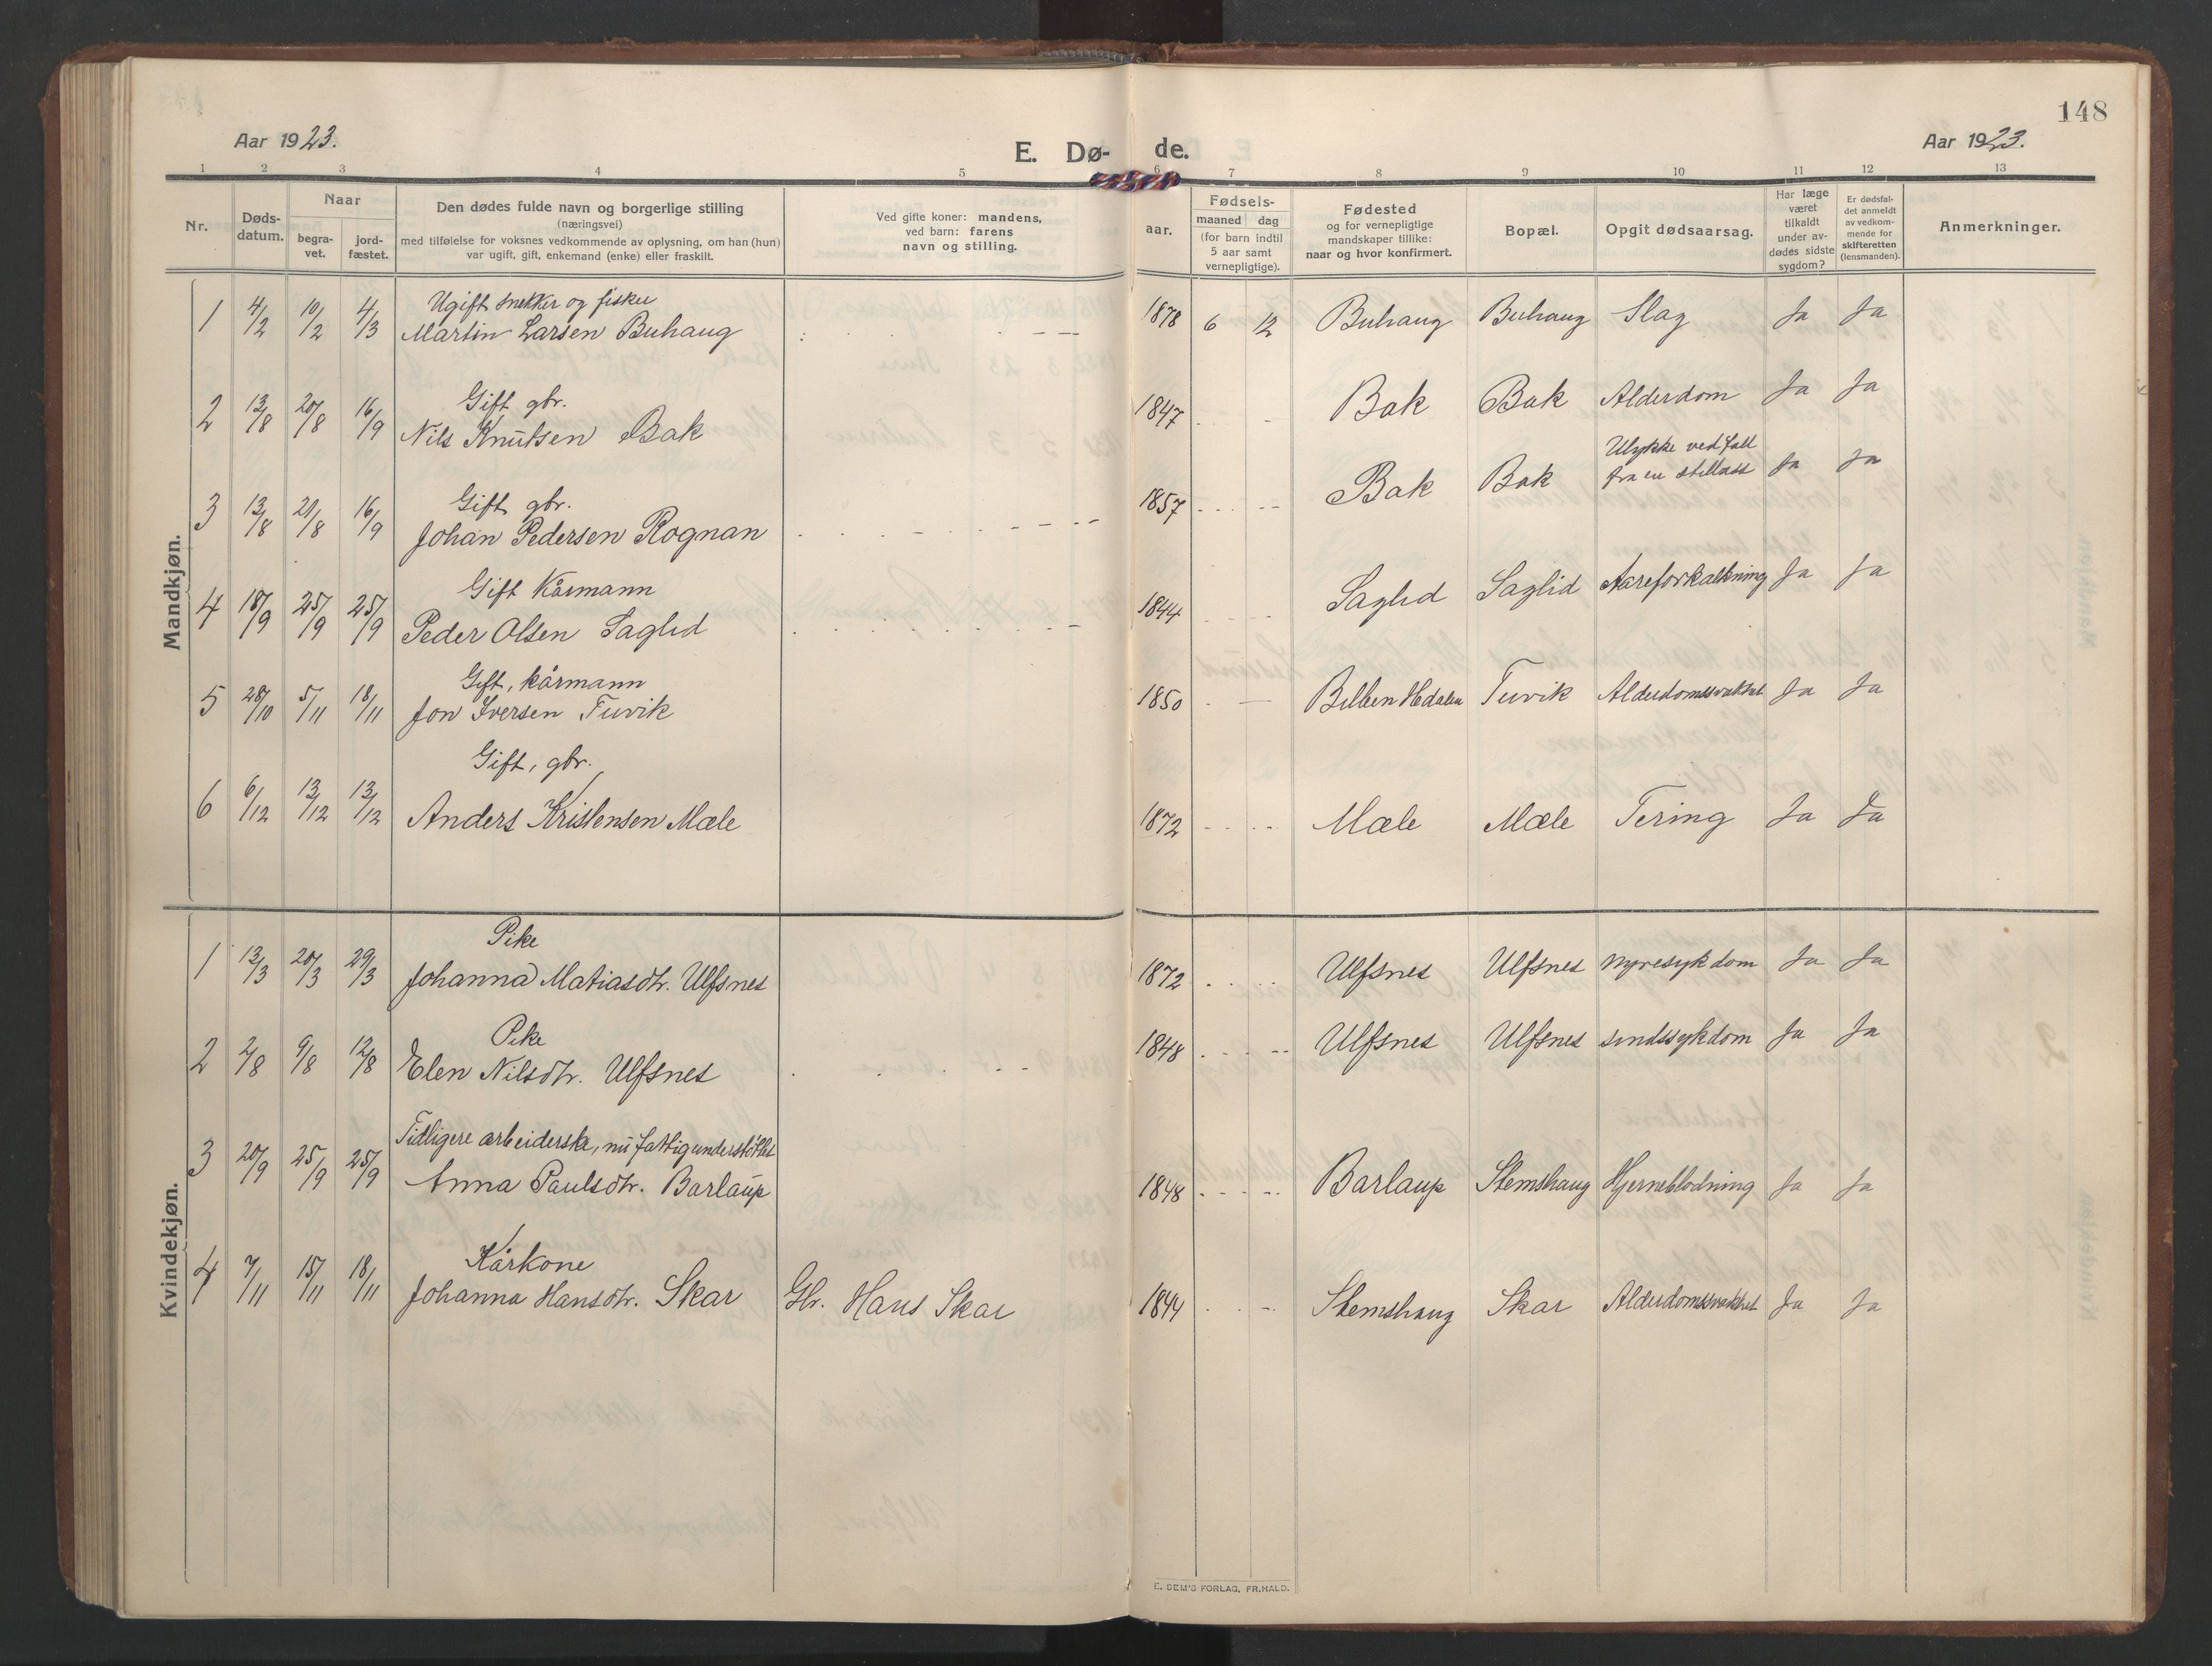 148
Aar 1923.
E. Dø- de.
Aar 1923.
1 2 3 4 5 6 7 8 9 10 11 12 13
Nr.
Døds-
datum.
Naar
begra-
vet.
jord-
fæstet.
Den dødes fulde navn og borgerlige stilling
(næringsvei)
med tilføielse for voksnes vedkommende av oplysning, om han (hun)
var ugift, gift, enkemand (enke) eller fraskilt.
Ved gifte koner: mandens,
ved barn: farens
navn og stilling.
Fødsels-
aar.
maaned dag
(for barn indtil
5 aar samt
vernepligtige).
Fødested
og for vernepligtige
mandskaper tillike:
naar og hvor konfirmert.
Bopæl.
Opgit dødsaarsag.
Har læge
været
tilkaldt
under av-
dødes sidste
sygdom?
Er dødsfal-
det anmeldt
av vedkom-
mende for
skifteretten
(lensmanden).
Anmerkninger.
Mandkjøn.
Ugift snekker og fisker
1 4/2 10/2 4/3 Martin Larsen Buhaug 1878 6 12 Buhaug Buhaug Slag Ja Ja
Gift gbr.
2 13/8 20/8 16/9 Nils Knutsen Bak 1847 Bak Bak Alderdom Ja Ja
Gift gbr.
3 13/8 21/8 16/9 Johan Pedersen Rognan 1857 Bak Bak Ulykke ved fall
fra en stillass Ja Ja
Gift Kårmann
4 18/9 25/9 25/9 Peder Olsen Saglid 1844 Saglid Saglid Aareforkalkning Ja Ja
Gift, kårmann
5 28/10 5/11 18/11 Jon Iversen Tuvik 1850 Tuvik Alderdomssvakhet Ja Ja
Gift, gbr.
6 6/12 13/12 13/12 Anders Kristensen Mæle 1872 Mæle Mæle Tering Ja Ja
Kvindekjøn.
Pike
1 13/3 20/3 29/3 Johanna Matiasdtr. Ulfsnes 1872 Ulfsnes Ulfsnes Nyresykdom Ja Ja
Pike
2 2/8 9/8 12/8 Elen Nilsdtr. Ulfsnes 1848 Ulfsnes Ulfsnes sindssykdom Ja Ja
Tidligere arbeiderske, nu fattigunderstöttet
3 20/9 25/9 25/9 Anna Paulsdtr. Barlaup 1848 Barlaup Stemshaug Hjerneblödning Ja Ja
Kårkone
4 7/11 15/11 18/11 Johanna Hansdtr. Skar Gbr. Hans Skar 1844 Stemshaug Skar Alderdomssvakhet Ja Ja
E. SEM'S FORLAG, FR.HALD.